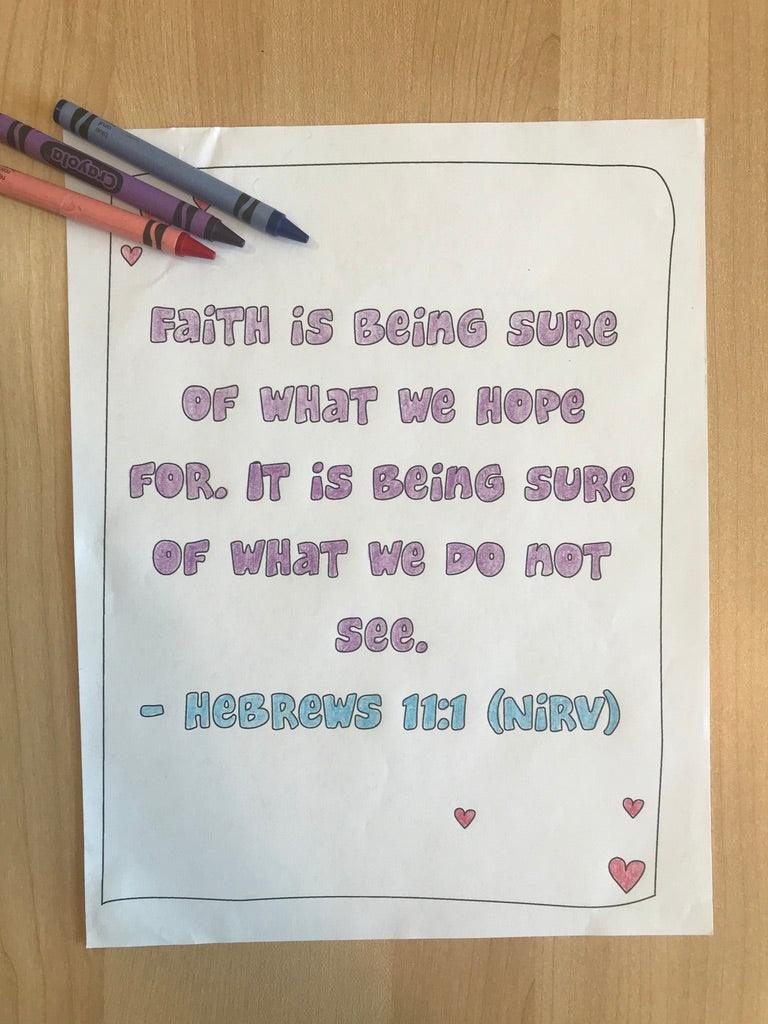 crayola
FaiTH iS BeinG SURe
OF WHaT We HOPe
FOR. IT iS BeinG SURe
OF WHaT We DO nOT
See.
- HeBReWS 11:1 (NiRV)